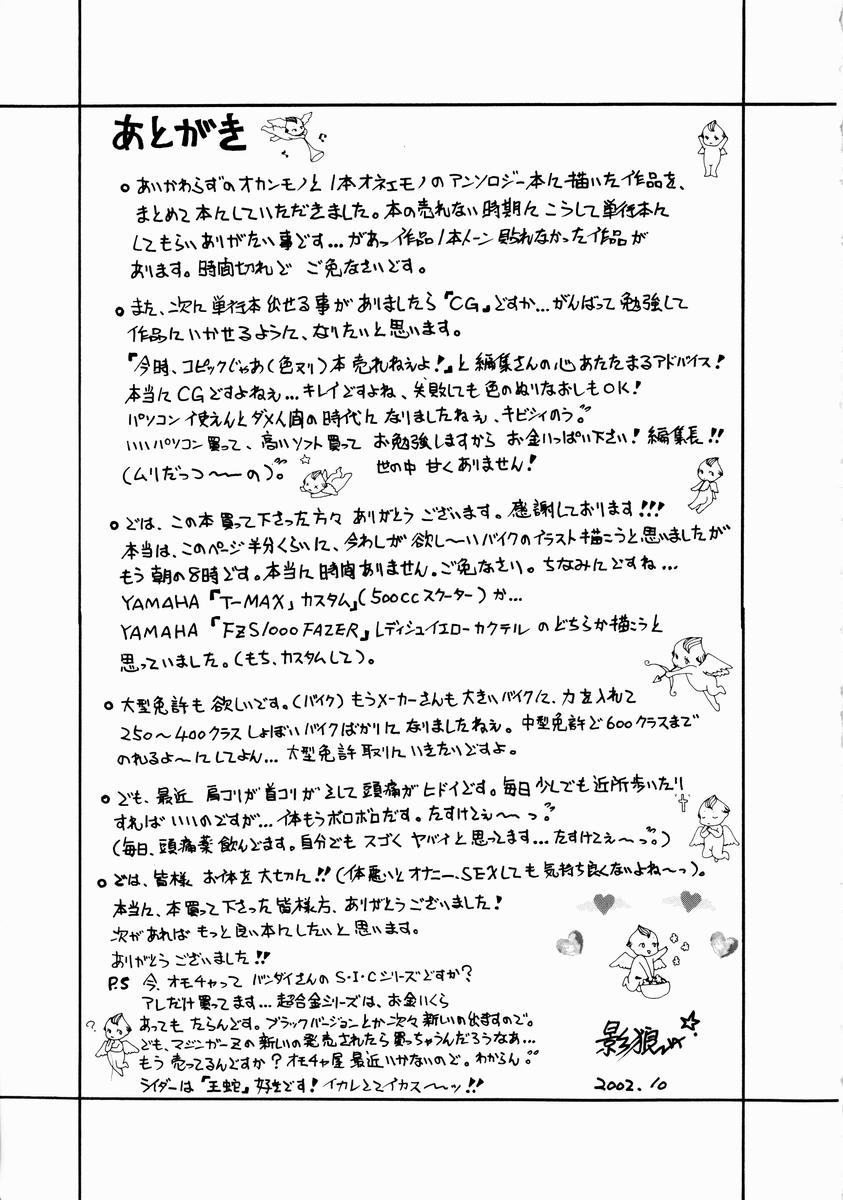 あとがき
○ あいかわらずのオカンモノと1本オネェモノのアンソロジー本に描いた作品を、
まとめて本にしていただきました。本の売れない時期にこうして単行本に
してもらいありがたい事です…があっ作品1本トーン貼れなかった作品が
あります。時間切れで ご免なさいです。
○ また、次に単行本出せる事がありましたら『CG』ですか…がんばって勉強して
作品にいかせるように、なりたいと思います。
『今時、コピックじゃあ(色ヌリ)本売れねぇよ!』と編集さんの心あたたまるアドバイス!
本当にCGですよねぇ…キレイですよね、失敗しても色のぬりなおしもOK!
パソコン使えんとダメ人間の時代になりましたねぇ、キビシィのう。
いいパソコン買って、高いソフト買って お勉強しますから お金いっぱい下さい!編集長!!
(ムリだっつ〜〜の)。 世の中 甘くありません!
○ では、この本買って下さった方々 ありがとうございます。感謝しております!!!
本当は、このページ半分くらいに、今わしが欲し〜いバイクのイラスト描こうと思いましたが
もう朝の8時です。本当に時間ありません。ご免なさい。ちなみにですね…
YAMAHA『T-MAX』カスタム』(500ccスクーター)か…
YAMAHA『FZS1000FAZER』レディシュイエローカクテル のどちらか描こうと
思っていました。(もち、カスタムして)。
○ 大型免許も欲しいです。(バイク)もうメーカーさんも大きいバイクに、力を入れて
250〜400クラスしょぼいバイクばかりになりましたねぇ。中型免許で600クラスまで
のれるよ〜にしてよん…大型免許取りにいきたいですよ。
○ でも、最近 肩コリが首コリがそして頭痛がヒドイです。毎日少しでも近所歩いたり
すればいいのですが…体もうボロボロだす。たすけてぇ〜〜っ。
(毎日、頭痛薬飲んでます。自分でもスゴくヤバイと思ってます…たすけてぇ〜っ。)
○ では、皆様 お体を大切に!!(体悪いとオナニー、SEXしても気持ち良くないよね〜っ)。
本当に、本買って下さった皆様方、ありがとうございました!
次があればもっと良い本にしたいと思います。
ありがとうございました!!
P.S 今、オモチャってバンダイさんのS・I・Cシリーズですか?
アレだけ買ってます…超合金シリーズは、お金いくら
あっても たらんです。ブラックバージョンとか次々新しいの出ますので。
でも、マジンガーZの新しいの発売されたら買っちゃうんだろうなあ…
もう売ってるんですか?オモチャ屋最近いかないので。わからん。
ライダーは『王蛇』好きです!イカレててイカス〜〜ッ!!
?
影狼
2002.10